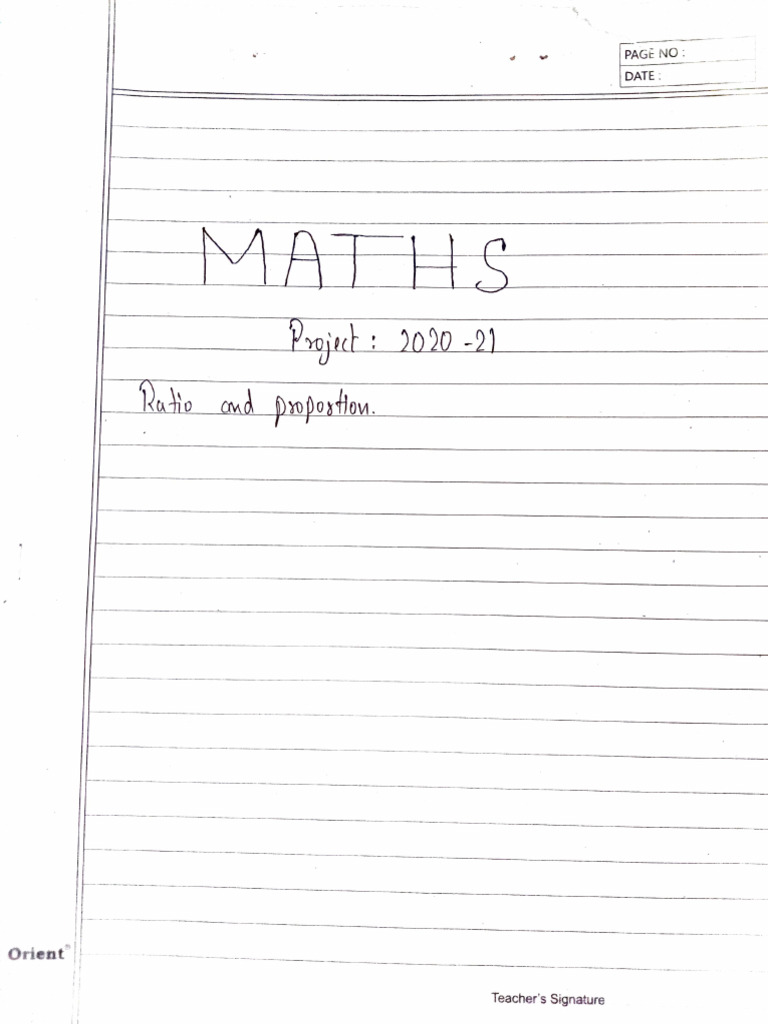 PAGE NO :
DATE :
MATHS
Project : 2020 -21
Ratio and proportion.
Orient
Teacher's Signature